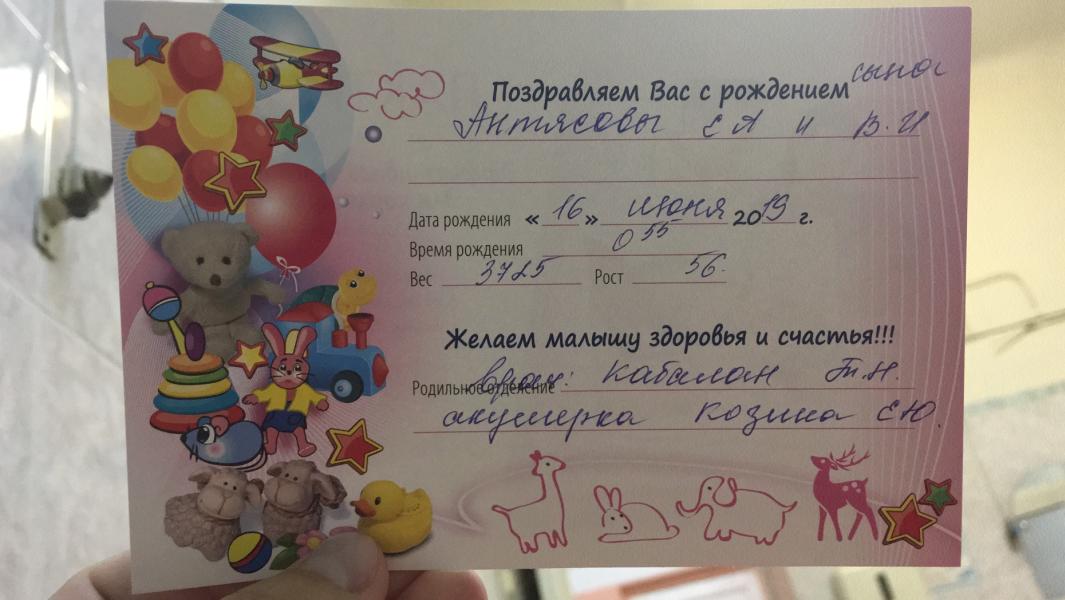 Поздравляем Вас с рождением сына
Антясовы Е А и В.И
Дата рождения «16» июня 2019 г.
Время рождения 0 55
Вес 3725 Рост 56.
Желаем малышу здоровья и счастья!!!
Родильное отделение врач: Кабалан Т.Н.
акушерка Козина Е Ю.